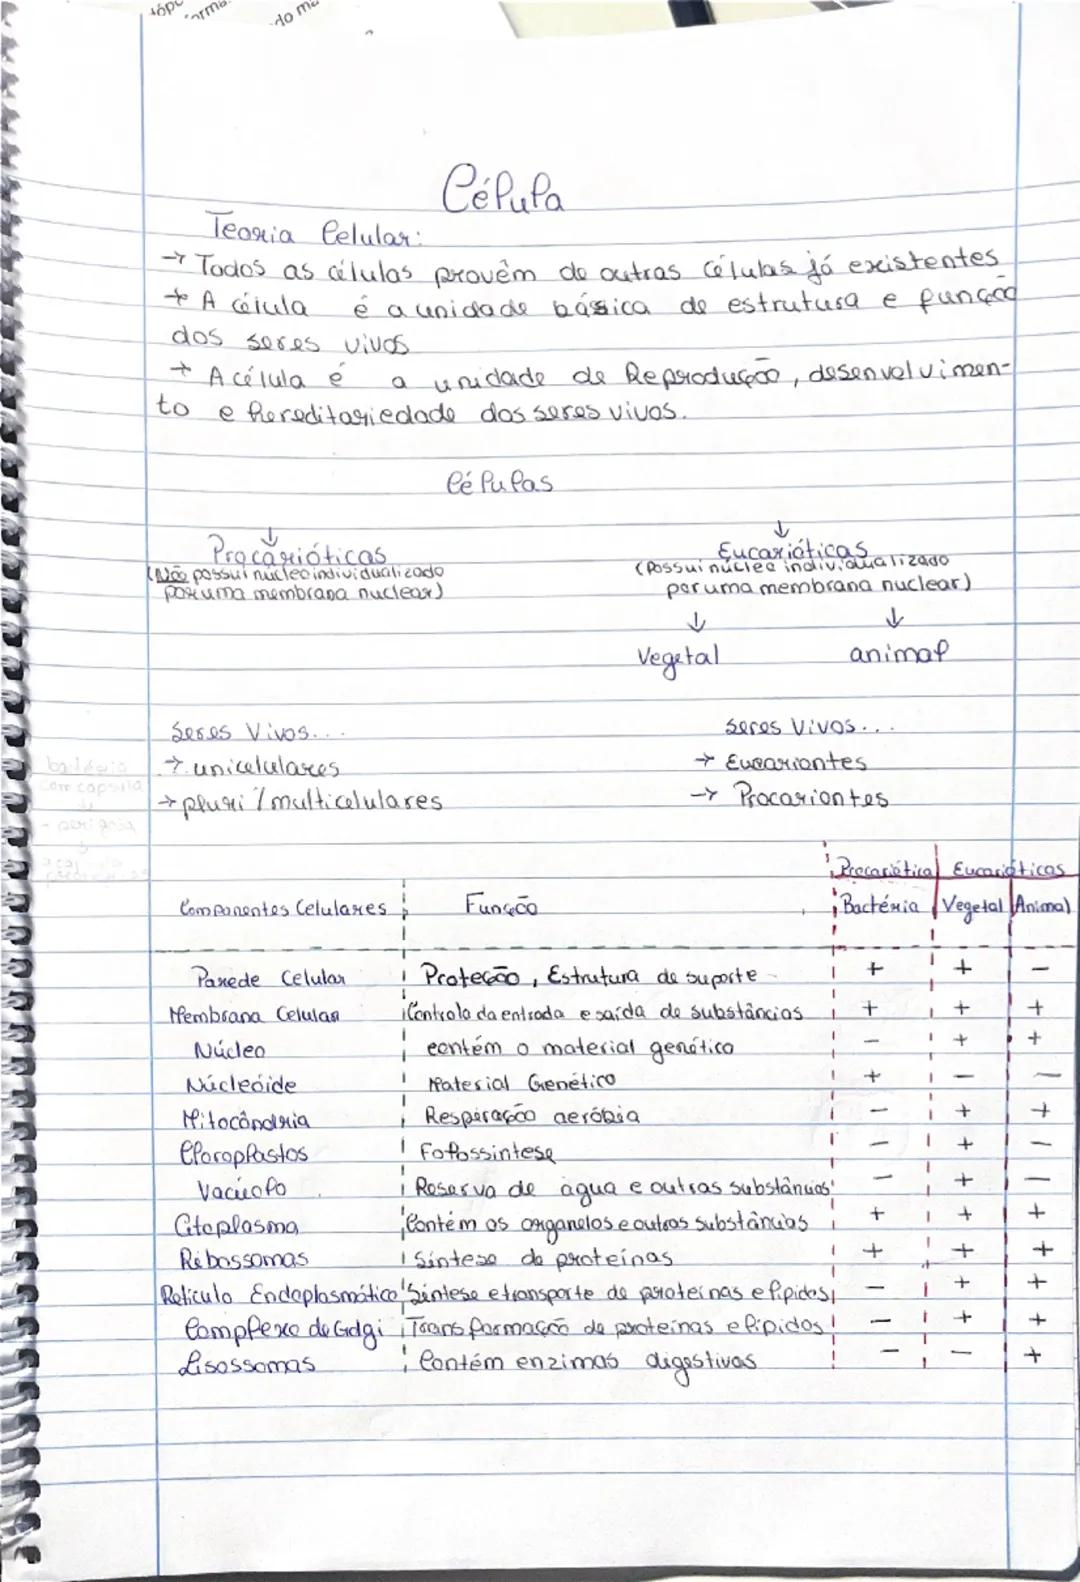 Célula
Teoria Celular:
→ Todas as células provêm de outras células já existentes
→ A célula é a unidade básica de estrutura e função
dos seres vivos
→ A célula é a unidade de Reprodução, desenvolvimen-
to e hereditariedade dos seres vivos.
Células
↓ ↓
Procarióticas Eucarióticas
(Não possui núcleo individualizado (Possui núcleo individualizado
por uma membrana nuclear) por uma membrana nuclear)
↓ ↓
Vegetal animal
Seres Vivos... Seres Vivos...
→ unicelulares → Eucariontes
→ pluri / multicelulares → Procariontes
bactéria
com capsula
Procariótica Eucarióticas
Componentes Celulares Função Bactéria Vegetal Animal
Parede Celular Proteção, Estrutura de suporte + + -
Membrana Celular Controlo da entrada e saída de substâncias + + +
Núcleo contém o material genético - + +
Núcleóide Material Genético + - -
Mitocôndria Respiração aeróbia - + +
Cloroplastos Fotossintese - + -
Vacúolo Reserva de água e outras substâncias - + -
Citoplasma Contém os organelos e outras substâncias + + +
Ribossomas Síntese de proteínas + + +
Retículo Endoplasmático Síntese e transporte de proteínas e lipidos - + +
Complexo de Golgi Transformação de proteínas e lipidos - + +
Lisossomas Contém enzimas digestivas - - +